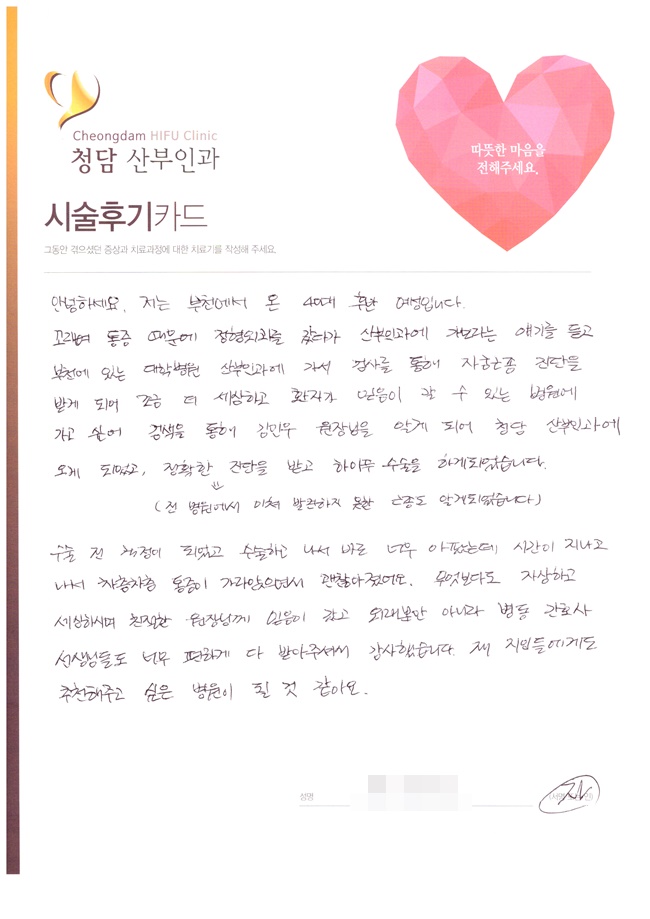 Cheongdam HIFU Clinic
청담 산부인과
따뜻한 마음을
전해주세요.
시술후기카드
그동안 겪으셨던 증상과 치료과정에 대한 치료기를 작성해 주세요.
안녕하세요. 저는 부천에서 온 40대 후반 여성입니다.
꼬리뼈 통증 때문에 정형외과를 갔다가 산부인과에 가보라는 얘기를 듣고
부천에 있는 대학병원 산부인과에 가서 검사를 통해 자궁근종 진단을
받게 되어 조금 더 세심하고 환자가 믿음이 갈 수 있는 병원에
가고 싶어 검색을 통해 김민우 원장님을 알게 되어 청담 산부인과에
오게 되었고, 정확한 진단을 받고 하이푸 수술을 하게되었습니다.
(전 병원에서 미처 발견하지 못한 근종도 알게되었습니다)
수술 전 걱정이 되었고 수술하고 나서 바로 너무 아팠는데 시간이 지나고
나서 차츰차츰 통증이 가라앉으면서 괜찮아졌어요. 무엇보다도 자상하고
세심하시며 친절한 원장님께 믿음이 갔고 외래뿐만 아니라 병동 간호사
선생님들도 너무 편하게 다 받아주셔서 감사했습니다. 제 지인들에게도
추천해주고 싶은 병원이 될 것 같아요.
성명